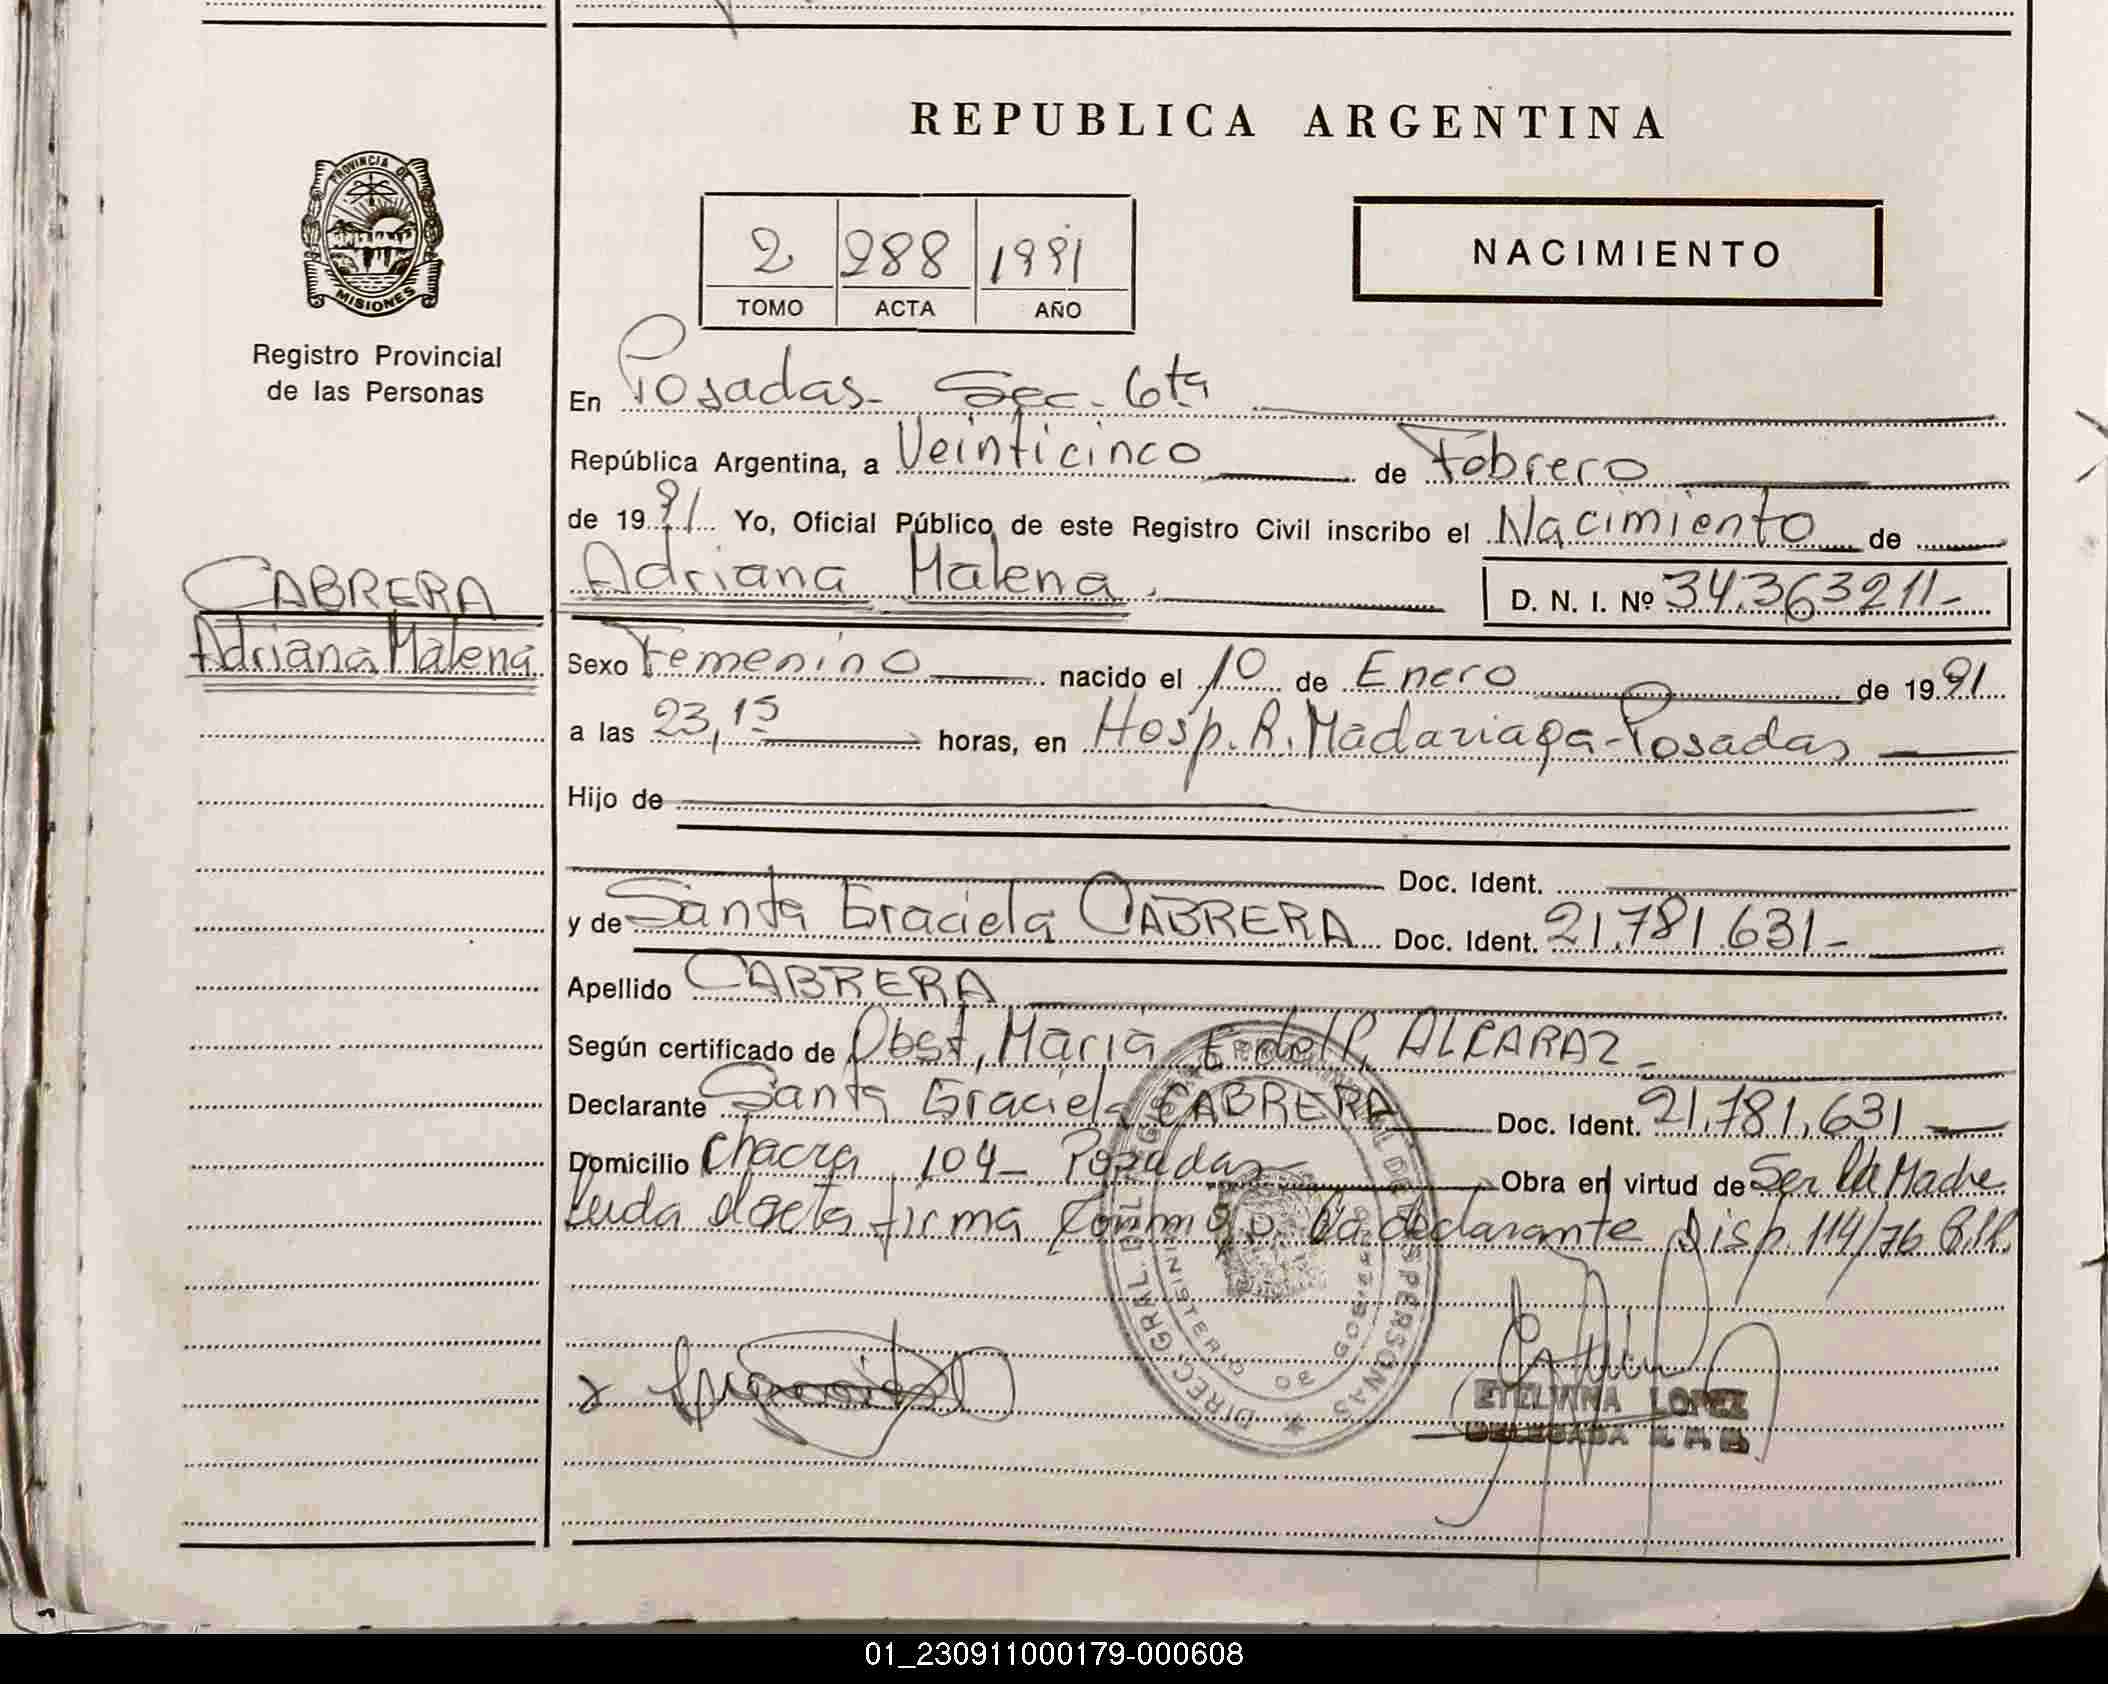 REPUBLICA ARGENTINA
PROVINCIA DE
MISIONES
Registro Provincial
de las Personas
2 288 1991
TOMO ACTA AÑO
NACIMIENTO
En Posadas - Sec. 6ta
República Argentina, a Veinticinco de Febrero
de 1991 Yo, Oficial Público de este Registro Civil inscribo el Nacimiento de
CABRERA
Adriana Malena
Adriana Malena D. N. I. Nº 34.363211-
Sexo Femenino nacido el 10 de Enero de 1991
a las 23,15 horas, en Hosp. R. Madariaga - Posadas
Hijo de
Doc. Ident.
y de Santa Graciela CABRERA Doc. Ident. 21.781.631-
Apellido CABRERA
Según certificado de Obst. Maria E. del P. ALCARAZ -
Declarante Santa Graciela CABRERA Doc. Ident. 21.781.631
Domicilio Chacra 104 - Posadas Obra en virtud de Ser la Madre
Leida el acta firma conmigo la declarante Disp. 114/76
DIREC. GRAL. DEL REG. PROVINCIAL DE LAS PERSONAS
MINISTERIO DE GOBIERNO
ETELVINA LOPEZ
DELEGADA
01_230911000179-000608